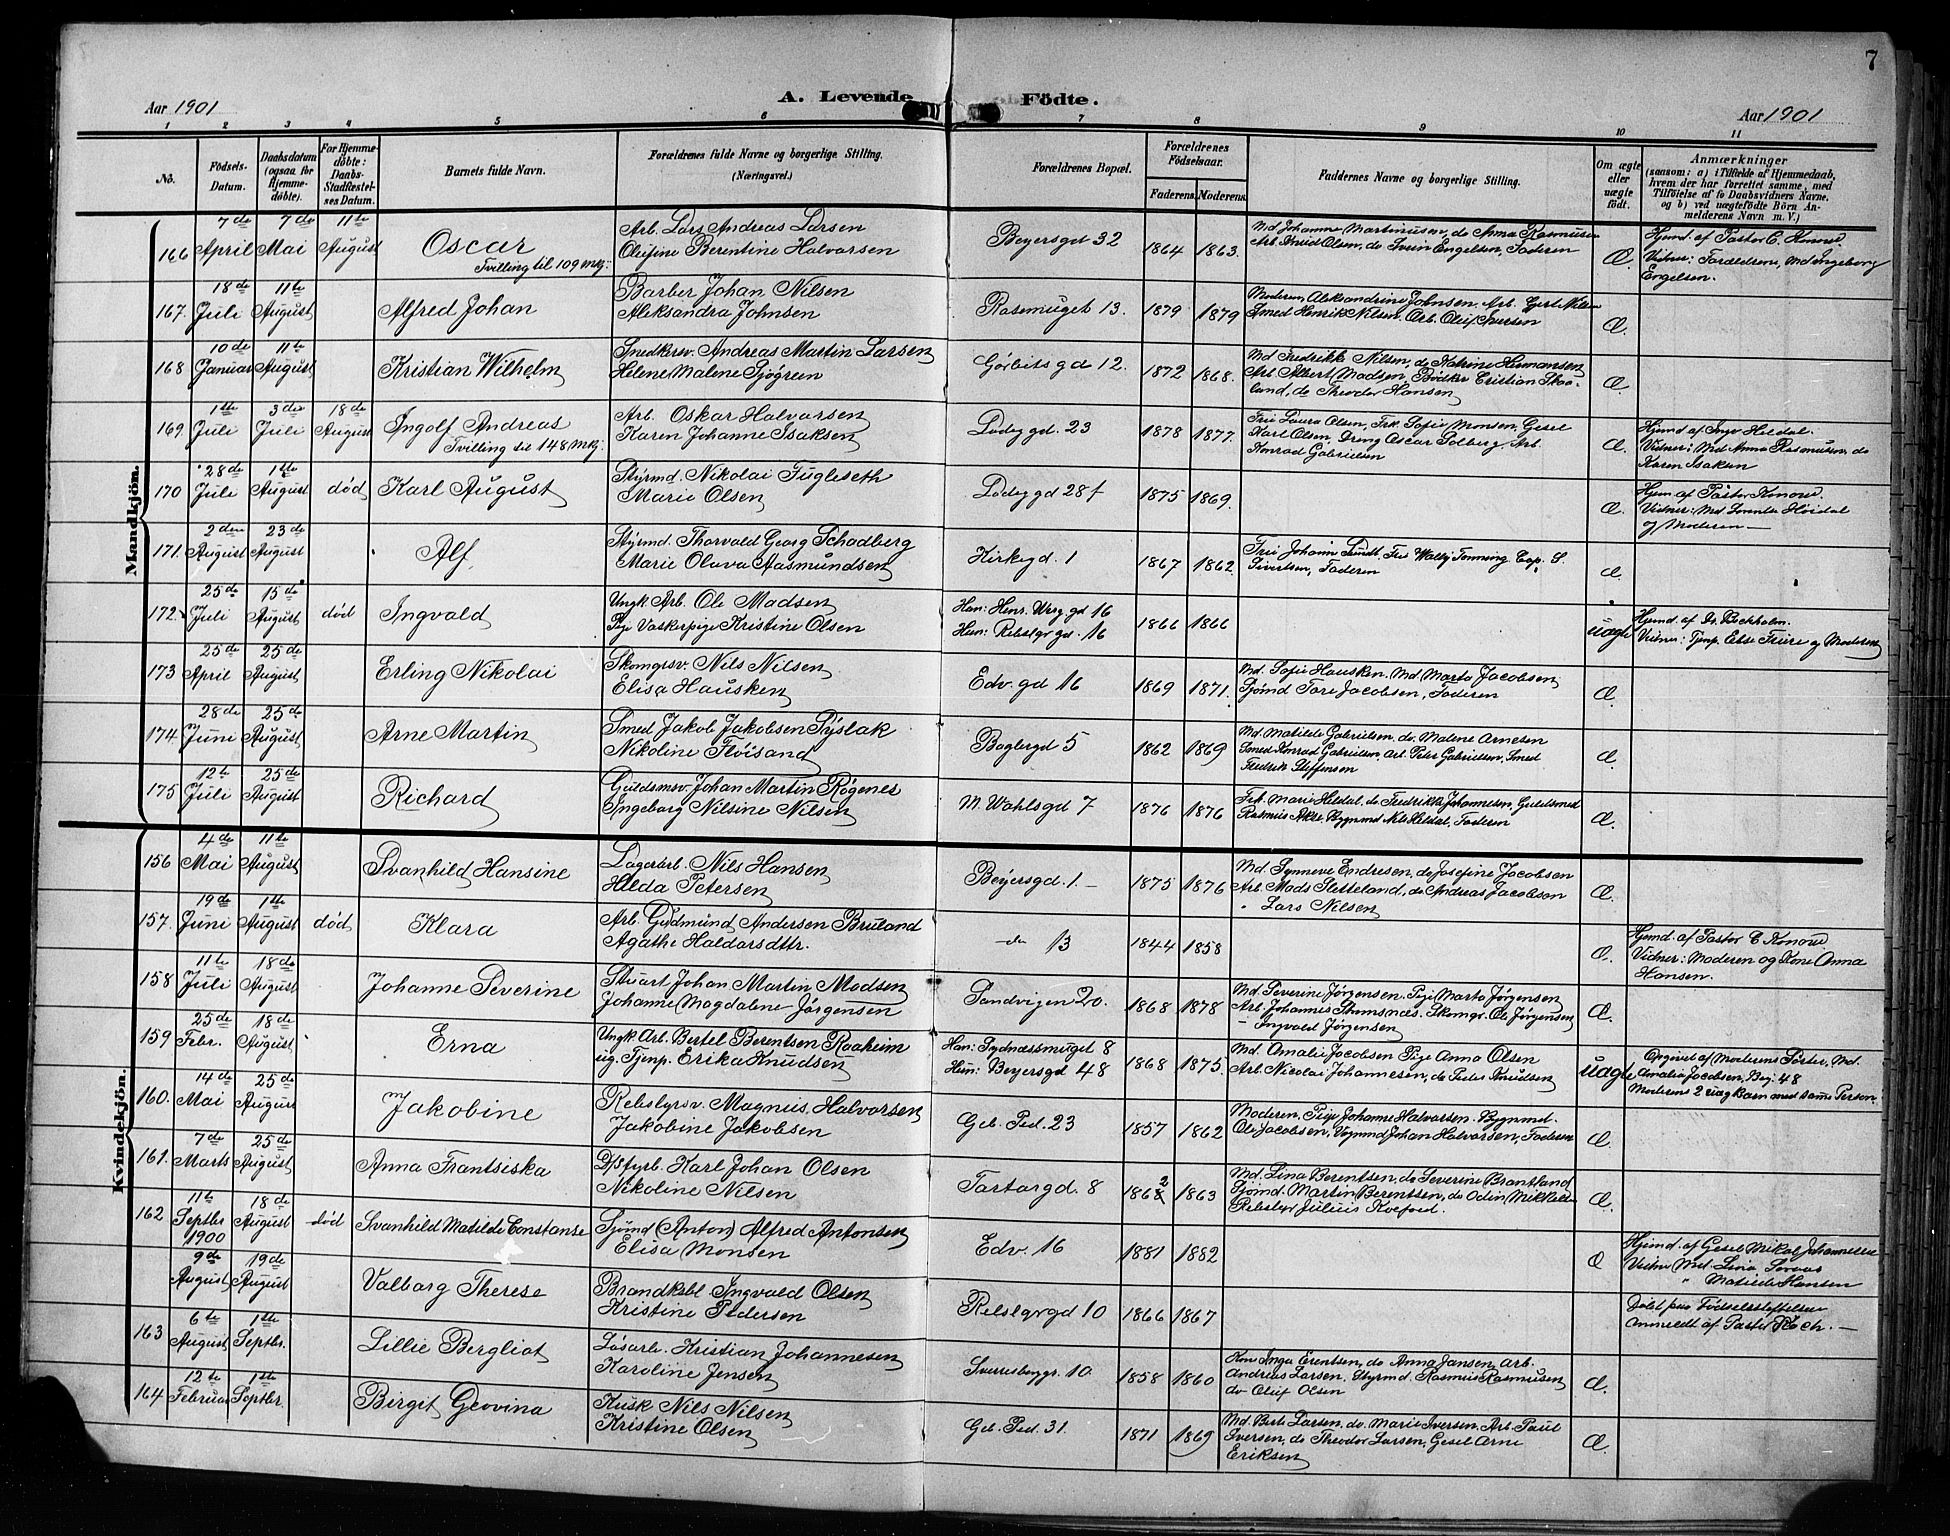 7
Aar 1901
A. Levende Födte.
Aar 1901
1 2 3 4 5 6 7 8 9 10 11
No.
Födsels-Datum.
Daabsdatum (ogsaa for Hjemmedöbte).
For Hjemmedöbte: Daabs-Stadfæstelses Datum.
Barnets fulde Navn.
Forældrenes fulde Navne og borgerlige Stilling.
(Næringsvei.)
Forældrenes Bopæl.
Forældrenes Födselsaar.
Faderens. Moderens.
Faddernes Navne og borgerlige Stilling.
Om ægte eller uægte født.
Anmærkninger
(saasom: a) i Tilfælde af Hjemmedaab, hvem der har forrettet samme, med Tilföielse af to Daabsvidners Navne, og b) ved uægtefödte Börn Anmelderens Navn m. V.)
Mandkjön.
166 7de April 7de Mai 11te August Oscar
Tvilling til 109 mkj:
Arb. Lars Andreas Larsen
Olufine Berentine Halvorsen
Beyersgd 32 1864 1863.
Md Johanne Martinusen, do Anna Rasmusen
Arb. Knud Olsen, do Svein Engelsen, Faderen
Æ.
Hjemd. af Pastor C. Konow.
Vidner: Forældrene, Md Ingeborg
Engelsen.
167. 18de Juli 11te August Alfred Johan
Barber Johan Nilsen
Aleksandra Johnsen
Rosesmuget 13. 1879 1879
Moderen, Aleksandrine Johnsen, Arb. Gert Nilsen
Smed Henrik Nilsen, Arb. Oluf Iversen
Æ.
168 10de Januar 11te August Kristian Wilhelm
Snedkersv. Andreas Martin Larsen
Helene Malene Sjøgreen
Gørbitsgd 12. 1872 1868.
Md Fredrikke Nilsen, do Katrine Hermansen
Arb Albert Madsen, Bødker Cristian Skaaland, do Theodor Hansen
Æ
169. 1ste Juli 3die Juli 18de August Ingolf Andreas
Tvilling til 148 mkj.
Arb. Oskar Halvorsen
Karen Johanne Isaksen
Lodegd. 23 1878 1877.
Frue Laura Olsen, Frk. Sofie Monsen, Gesel
Karl Olsen, Dreng Oscar Solberg, Arb.
Konrad Gabrielsen
Æ.
Hjemd af Inga Heldal.
Vidner: Md Anna Rasmusen, do
Karen Isaksen
170 28de Juli 1ste August død Karl August
Styrmd. Nikolai Fugleseth
Marie Olsen
Lodegd 28f 1875 1869.
Æ.
Hjem af Pastor Konow.
Vidner: Md Lorentse Høidal
og Moderen —
171. 2den August 23de August Alf.
Styrmd. Thorvald Georg Schodberg
Marie Olava Aasmundsen
Kirkegd. 1 1867 1862.
Frue Johanne Sundt, Frue Wally Tønning, Cap. S.
Sivertsen, Faderen
Æ.
172. 25de Juli 15de August død Ingvald
Ungk. Arb. Ole Madsen
Pige Vaskerpige Kristine Olsen
Han: Henr. Werg.gd 16
Hun: Rebslgr gd. 16
1866 1866
uægte
Hjemd. af Dr. Beckholm.
173 25de April 25de August Erling Nikolai
Skomgrsv. Nils Nilsen
Elisa Hausken
Edv. gd 16 1869 1871.
Md. Sofie Hausken, Md Marta Jacobsen
Sjømd Tore Jacobsen, Faderen
Æ.
174. 28de Juni 25de August Arne Martin
Smed Jakob Jakobsen Syslak
Nikoline Fløisand
Baglergd 5 1862 1869
Md. Matilde Gabrielsen, do Malene Arnesen
Smed Konrad Gabrielsen, Arb. Peter Gabrielsen, Smed
Fredrik Steffensen
Æ.
175 12te Juli 25de August Richard
Guldsmsv. Johan Martin Røgenes
Ingeborg Nilsine Nilsen
M. Wahlsgd 7 1876 1876
Frk. Marie Heldal, do Fredrikke Johannesen, Guldsmed
Rasmus Akse, Bygnmd Nils Heldal, Faderen
Æ.
Kvindekjön.
156 4de Mai 11te August Svanhild Hansine
Lagerarb. Nils Hansen
Hilda Petersen
Beyersgd. 1 — 1875 1876
Md. Synneve Endresen, do Josefine Jacobsen
Arb. Mads Sletteland, do Andreas Jacobsen
" Lars Nilsen
Æ.
157. 19de Juni 1ste August død Klara
Arb. Gudmund Andersen Bruland
Agathe Haldorsdttr.
— do 13 1844 1858
Æ.
Hjemd. af Pastor C Konow
Vidner: Moderen og Kone Anna
Hansen.
158 11te Juli 18de August Johanne Severine
Stuart Johan Martin Madsen
Johanne Magdalene Jørgensen
Sandvigen 20. 1868 1878
Md. Severine Jørgensen. Pige Marta Jørgensen
Arb. Johannes Stemsnæs. Skomgr. Ole Jørgensen
— Ingvald Jørgensen
Æ.
159 25de Febr. 18de August Erna
Ungk. Arb. Bertel Berentsen Raaheim
ug. Tjenp. Erika Knudsen
Han: Sydnæssmuget 8
Hun: Beyersgd 48
1868 1875.
Md. Amalie Jacobsen Pige Anna Olsen
Arb. Nicolai Johannesen, do Peder Knudsen
uægte
Opgivet af Moderens Søster, Md.
Amalia Jacobsen, Bey. 48
Moderens 2 uæg Barn med samme Person
160. 14de Mai 25de August Jakobine
Rebslgrsv. Magnus Halvorsen
Jakobine Jakobsen
Geb. Ped. 23 1857 1862
Moderen, Pige Johanne Halvorsen. Bygnmd.
Ole Jacobsen, Vognmd Johan Halvorsen, Faderen
Æ
161. 7de Marts 25de August Anna Frantsiska
D/sfyrb. Karl Johan Olsen
Nikoline Nilsen
Tartargd. 8 1862 1863
Md. Lina Berentsen, do Severine Brantland
Sjømd. Martin Berentsen, do Odin Mikkelsen
Rebslgr Julius Koefoed.
Æ.
162 11te Septbr 1900 18de August død Svanhild Matilde Constanse
Sjømd (Anton) Alfred Antonsen
Elisa Monsen
Edv. 16 1881 1882
Æ
Hjemd. af Gesel Mikal Johannesen
Vidner Md. Lina Soraas
" Matilde Hansen
9de August 19de August Valborg Therese
Brandkbl Ingvald Olsen
Kristine Pedersen
Rebslgrgd 10 1866 1867
Døbt paa Fødselsstiftelsen
anmeldt af Pastor Koch. —
163 6te August 1ste Septbr. Lillie Bergliot
Løsarb. Kristian Johannesen
Karoline Jensen
Sverresborggr. 10 1858 1860
Kone Inga Erentsen, do Anna Jansen, Arb.
Andreas Larsen, Styrmd. Rasmus Rasmusen
do Oluf Olsen
Æ.
164 12te Februar 1ste Septbr. Birgit Govina
Kusk Nils Nilsen
Kristine Olsen
Geb. Ped. 31. 1871 1869
Md. Berte Larsen, do Marie Iversen, Arb. Paul
Iversen, do Theodor Larsen, Gesel Arne
Eriksen
Æ.